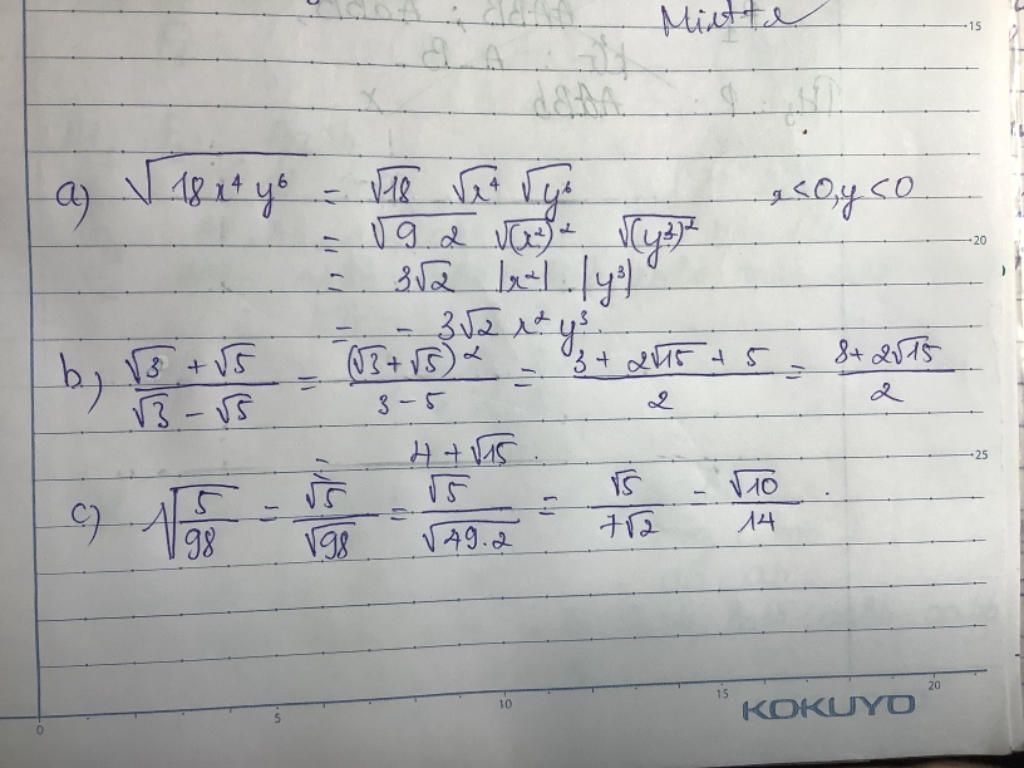 15
a) √(18x⁴y⁶) = √18 √x⁴ √y⁶ x<0, y<0
= √(9.2) √(x²)² √(y³)² 20
= 3√2 |x²| . |y³|
= - 3√2 x² y³.
b) (√3 + √5)/(√3 - √5) = (√3 + √5)²/(3 - 5) = (3 + 2√15 + 5)/2 = (8 + 2√15)/2
= 4 + √15. 25
c) √(5/98) = √5/√98 = √5/√(49.2) = √5/(7√2) = √10/14.
0 5 10 15 20
KOKUYO